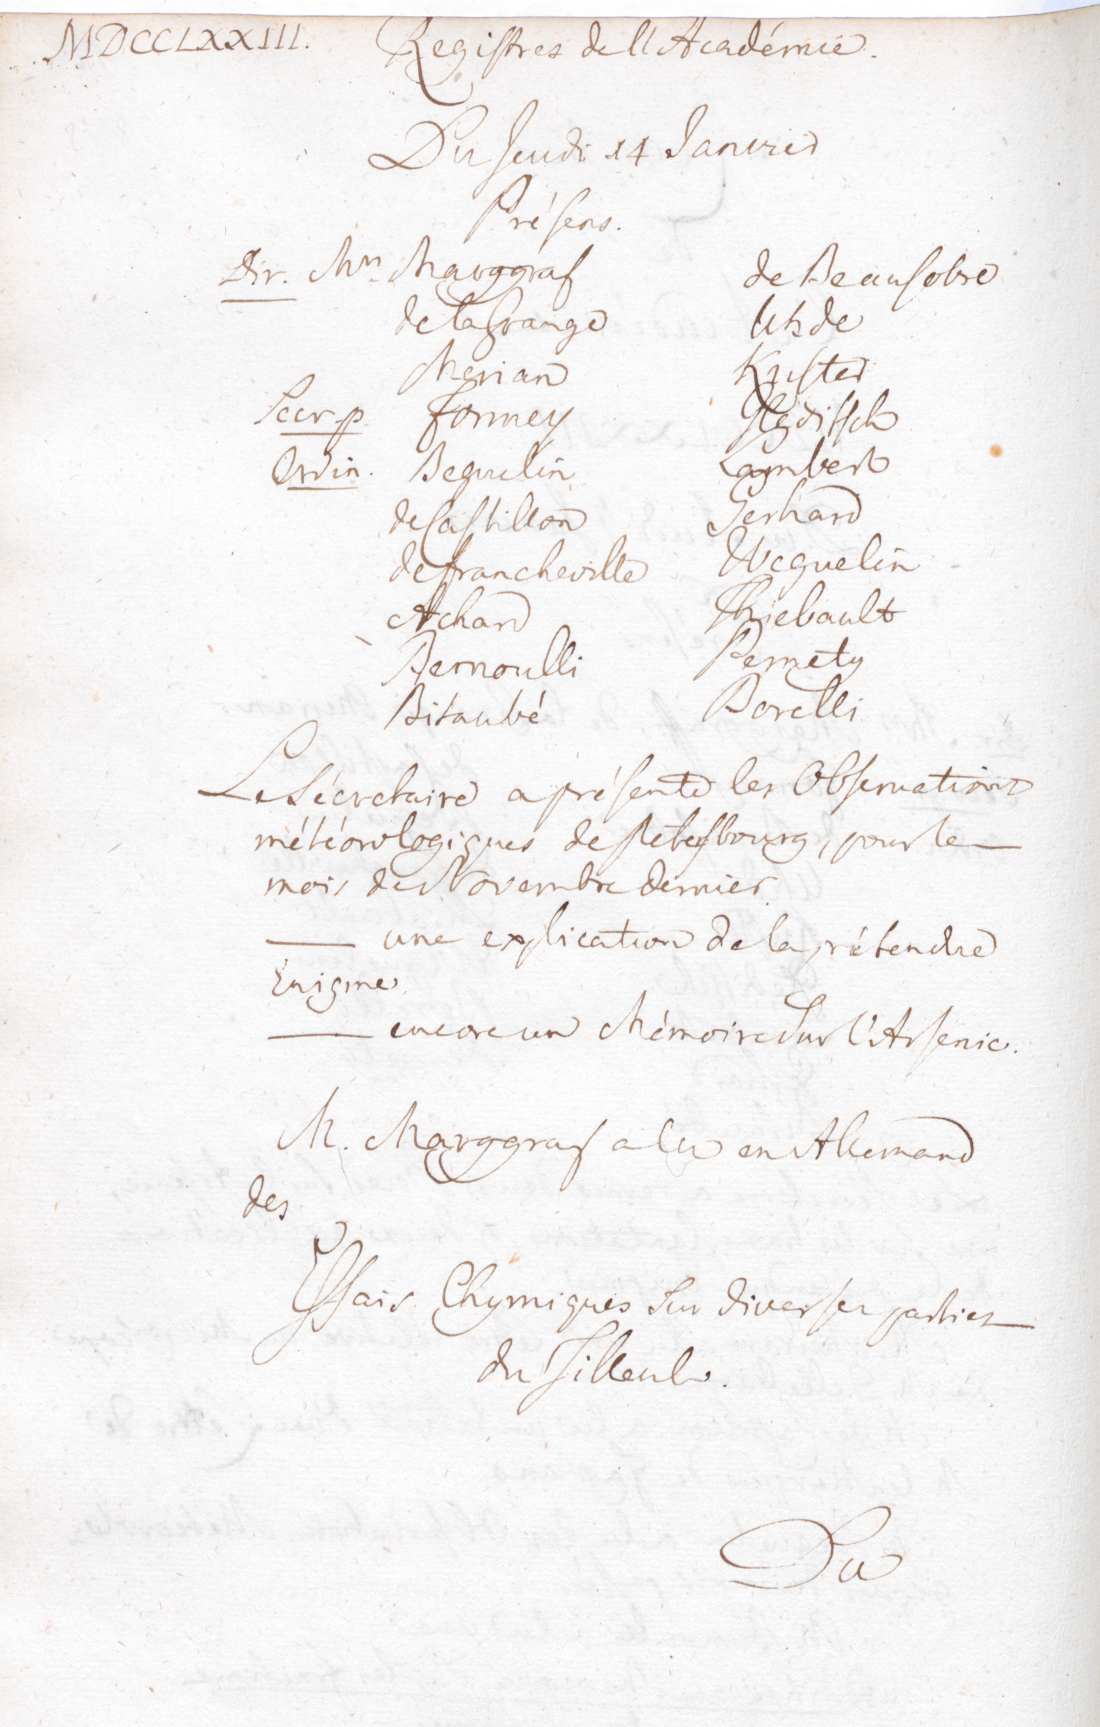 MDCCLXXIII. Registres de l'Académie.
Du Jeudi 14 Janvier
Présens.
Dir. Mrs Marggraf
de la Grange
Merian
Secr. p. Formey
Ordin. Beguelin
de Castillon
de Francheville
Achard
Bernoulli
Bitaubé
de Beausobre
Uhde
Kuster
Gleditsch
Lambert
Gerhard
Weguelin
Thiebault
Pernety
Borelli
Le Sécretaire a présenté les Observations
météorologiques de Petersbourg, pour le
mois de Novembre dernier.
— une explication de la prétendue
Enigme.
— encore un Mémoire sur l'Arsenic.
M. Marggraf a lu en Allemand
des
Essais Chymiques sur diverses parties
du Tilleul.
Du